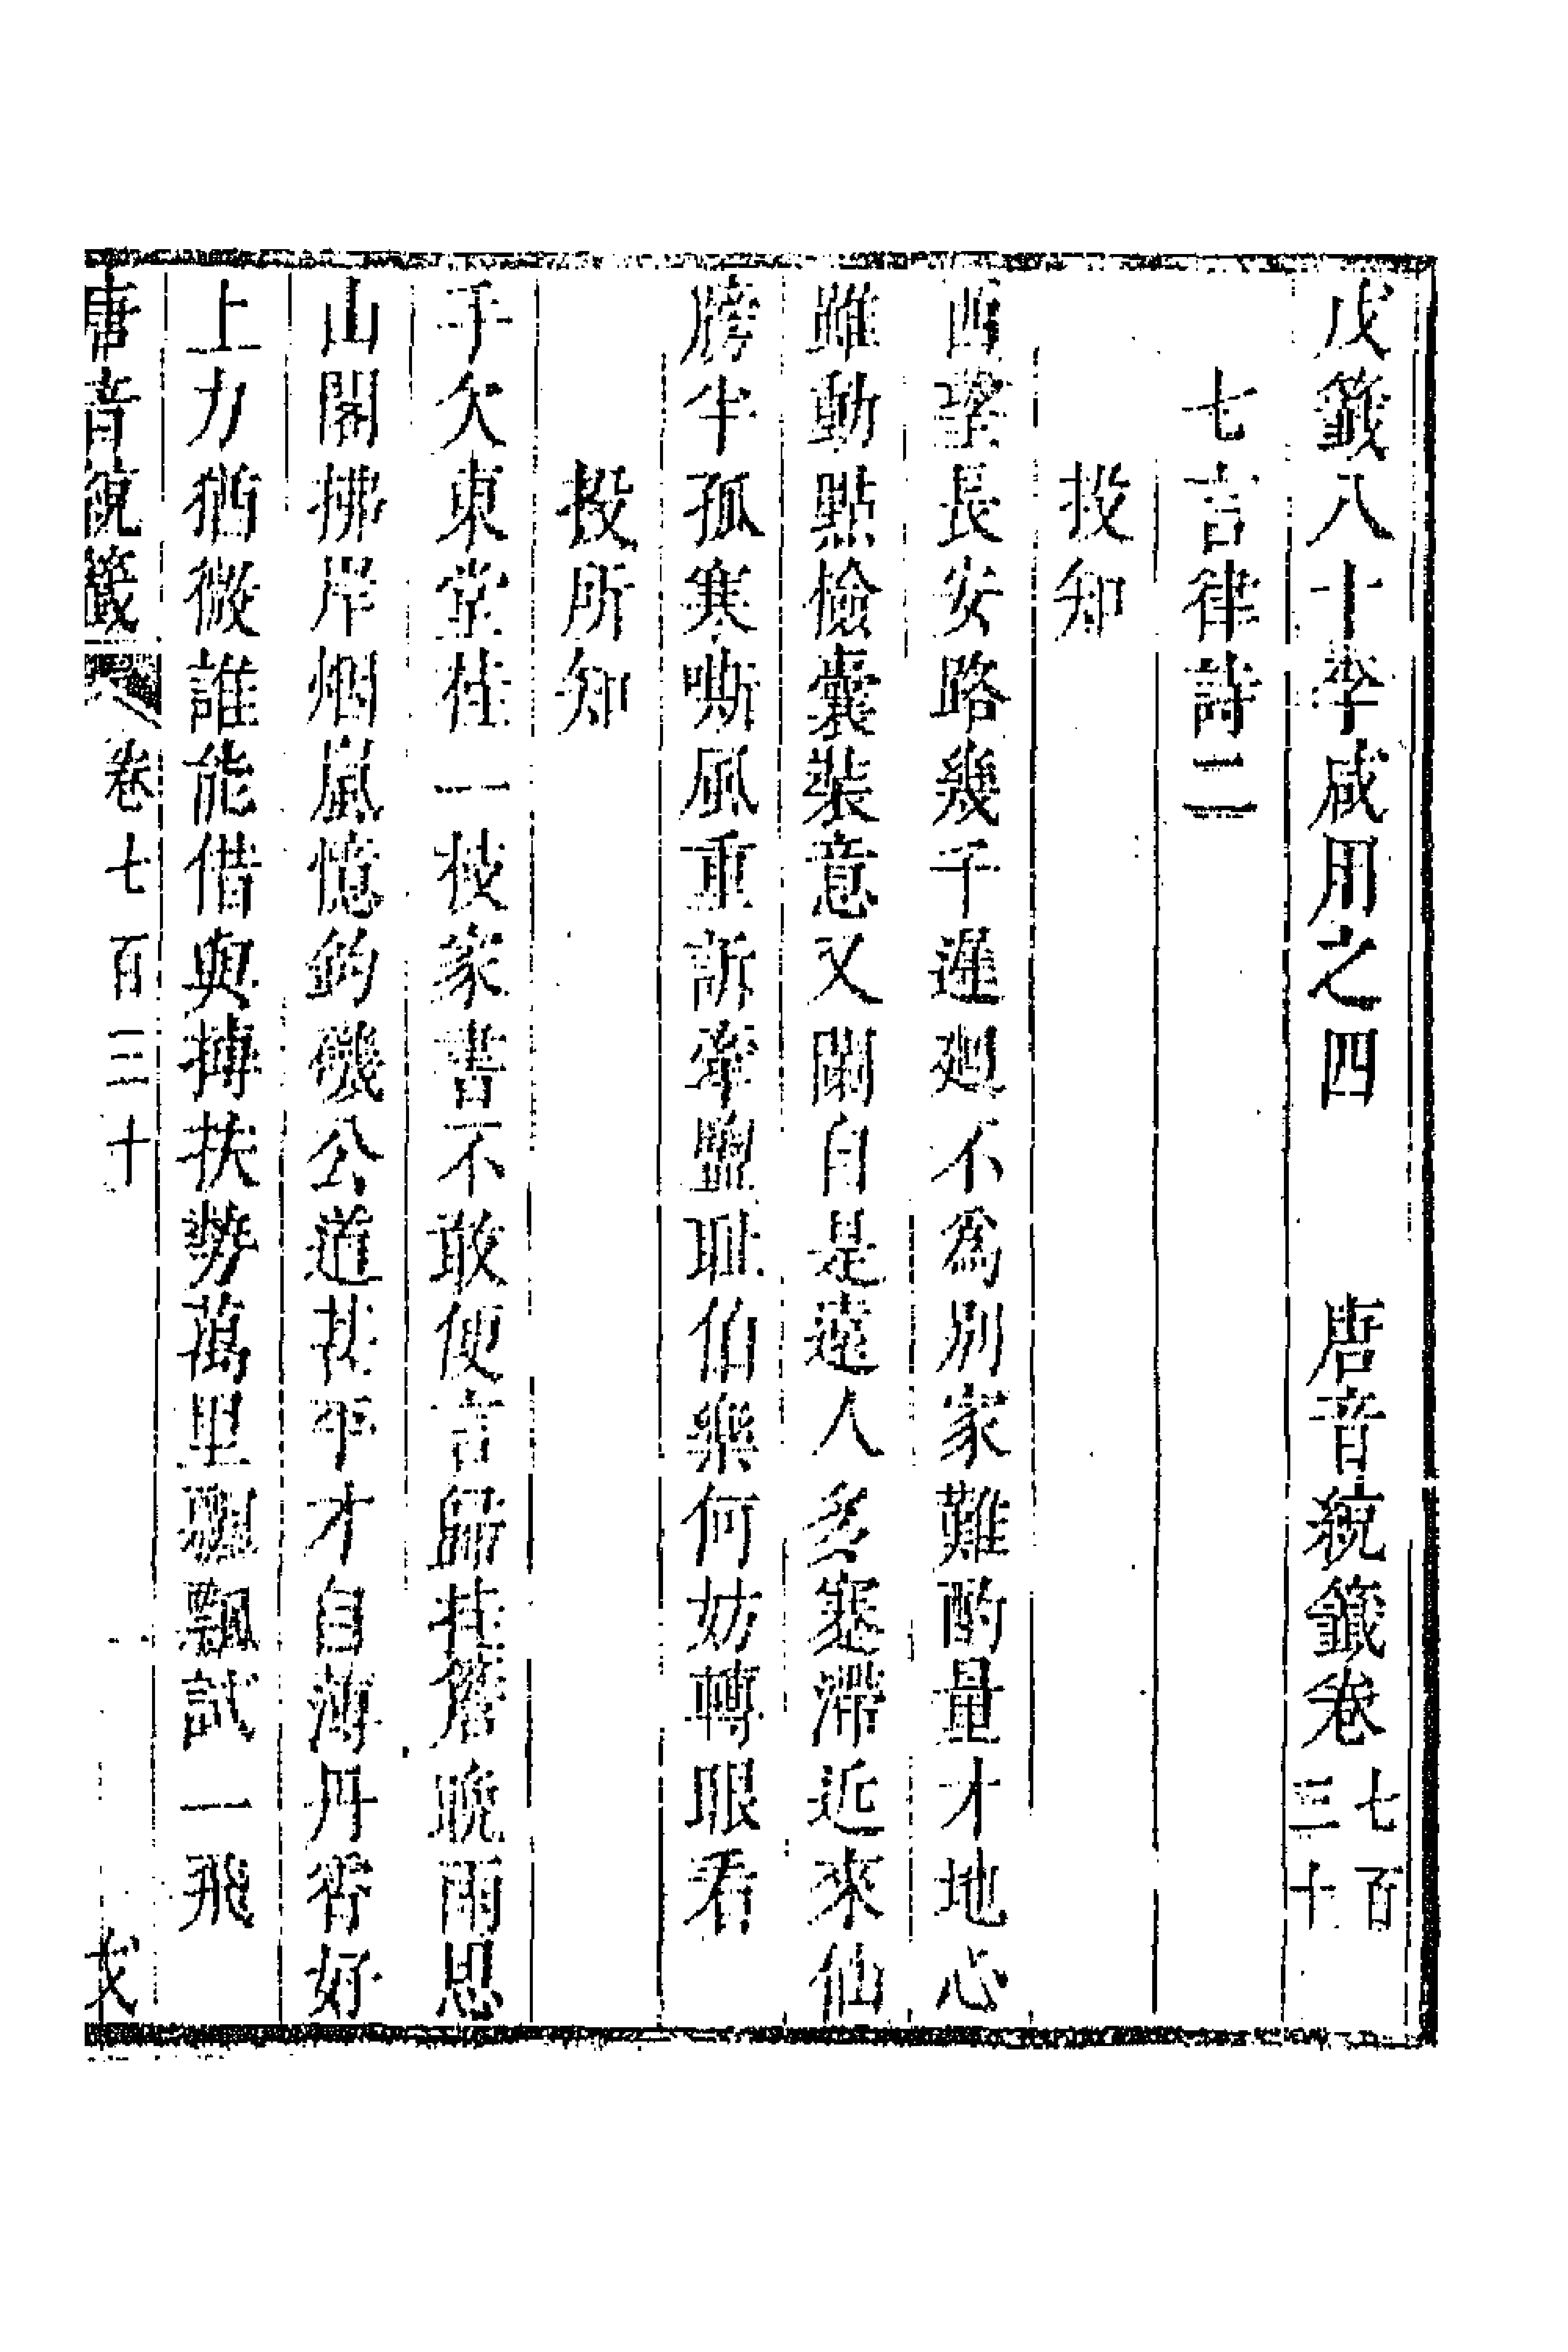 戊籤八十李咸用之四　唐音統籤卷七百三十
七言律詩二
投知
西望長安路幾千遲迴不爲別家難酌量才地心
雖動點檢囊裝意又闌自是遠人多蹇滯近來仙
牓半孤寒嘶風重訴牽鹽耻伯樂何妨轉眼看
投所知
手欠東堂桂一枝家書不敢便言歸挂簷晚雨思
山閣拂岸烟嵐憶釣磯公道甚平才自薄丹霄好
上力猶微誰能借與摶扶勢萬里飄飄試一飛
唐音統籤 卷七百三十 戊